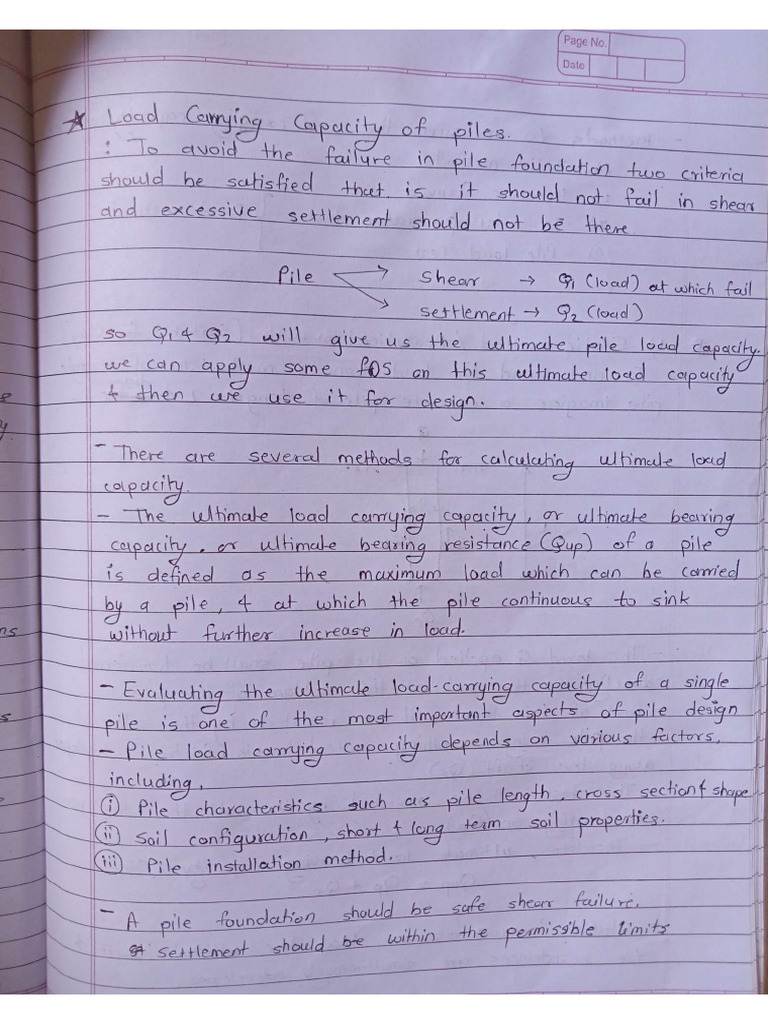 Page No.
Date
★ Load Carrying Capacity of piles.
: To avoid the failure in pile foundation two criteria
should be satisfied that is it should not fail in shear
and excessive settlement should not be there
Pile → Shear → Q1 (load) at which fail
→ settlement → Q2 (load)
so Q1 & Q2 will give us the ultimate pile load capacity.
we can apply some fOS on this ultimate load capacity
& then we use it for design.
- There are several methods for calculating ultimate load
capacity.
- The ultimate load carrying capacity, or ultimate bearing
capacity, or ultimate bearing resistance (Qup) of a pile
is defined as the maximum load which can be carried
by a pile, & at which the pile continuous to sink
without further increase in load.
- Evaluating the ultimate load-carrying capacity of a single
pile is one of the most important aspects of pile design
- Pile load carrying capacity depends on various factors,
including,
(i) Pile characteristics such as pile length, cross section & shape
(ii) Soil configuration, short & long term soil properties.
(iii) Pile installation method.
- A pile foundation should be safe shear failure,
settlement should be within the permissible limits